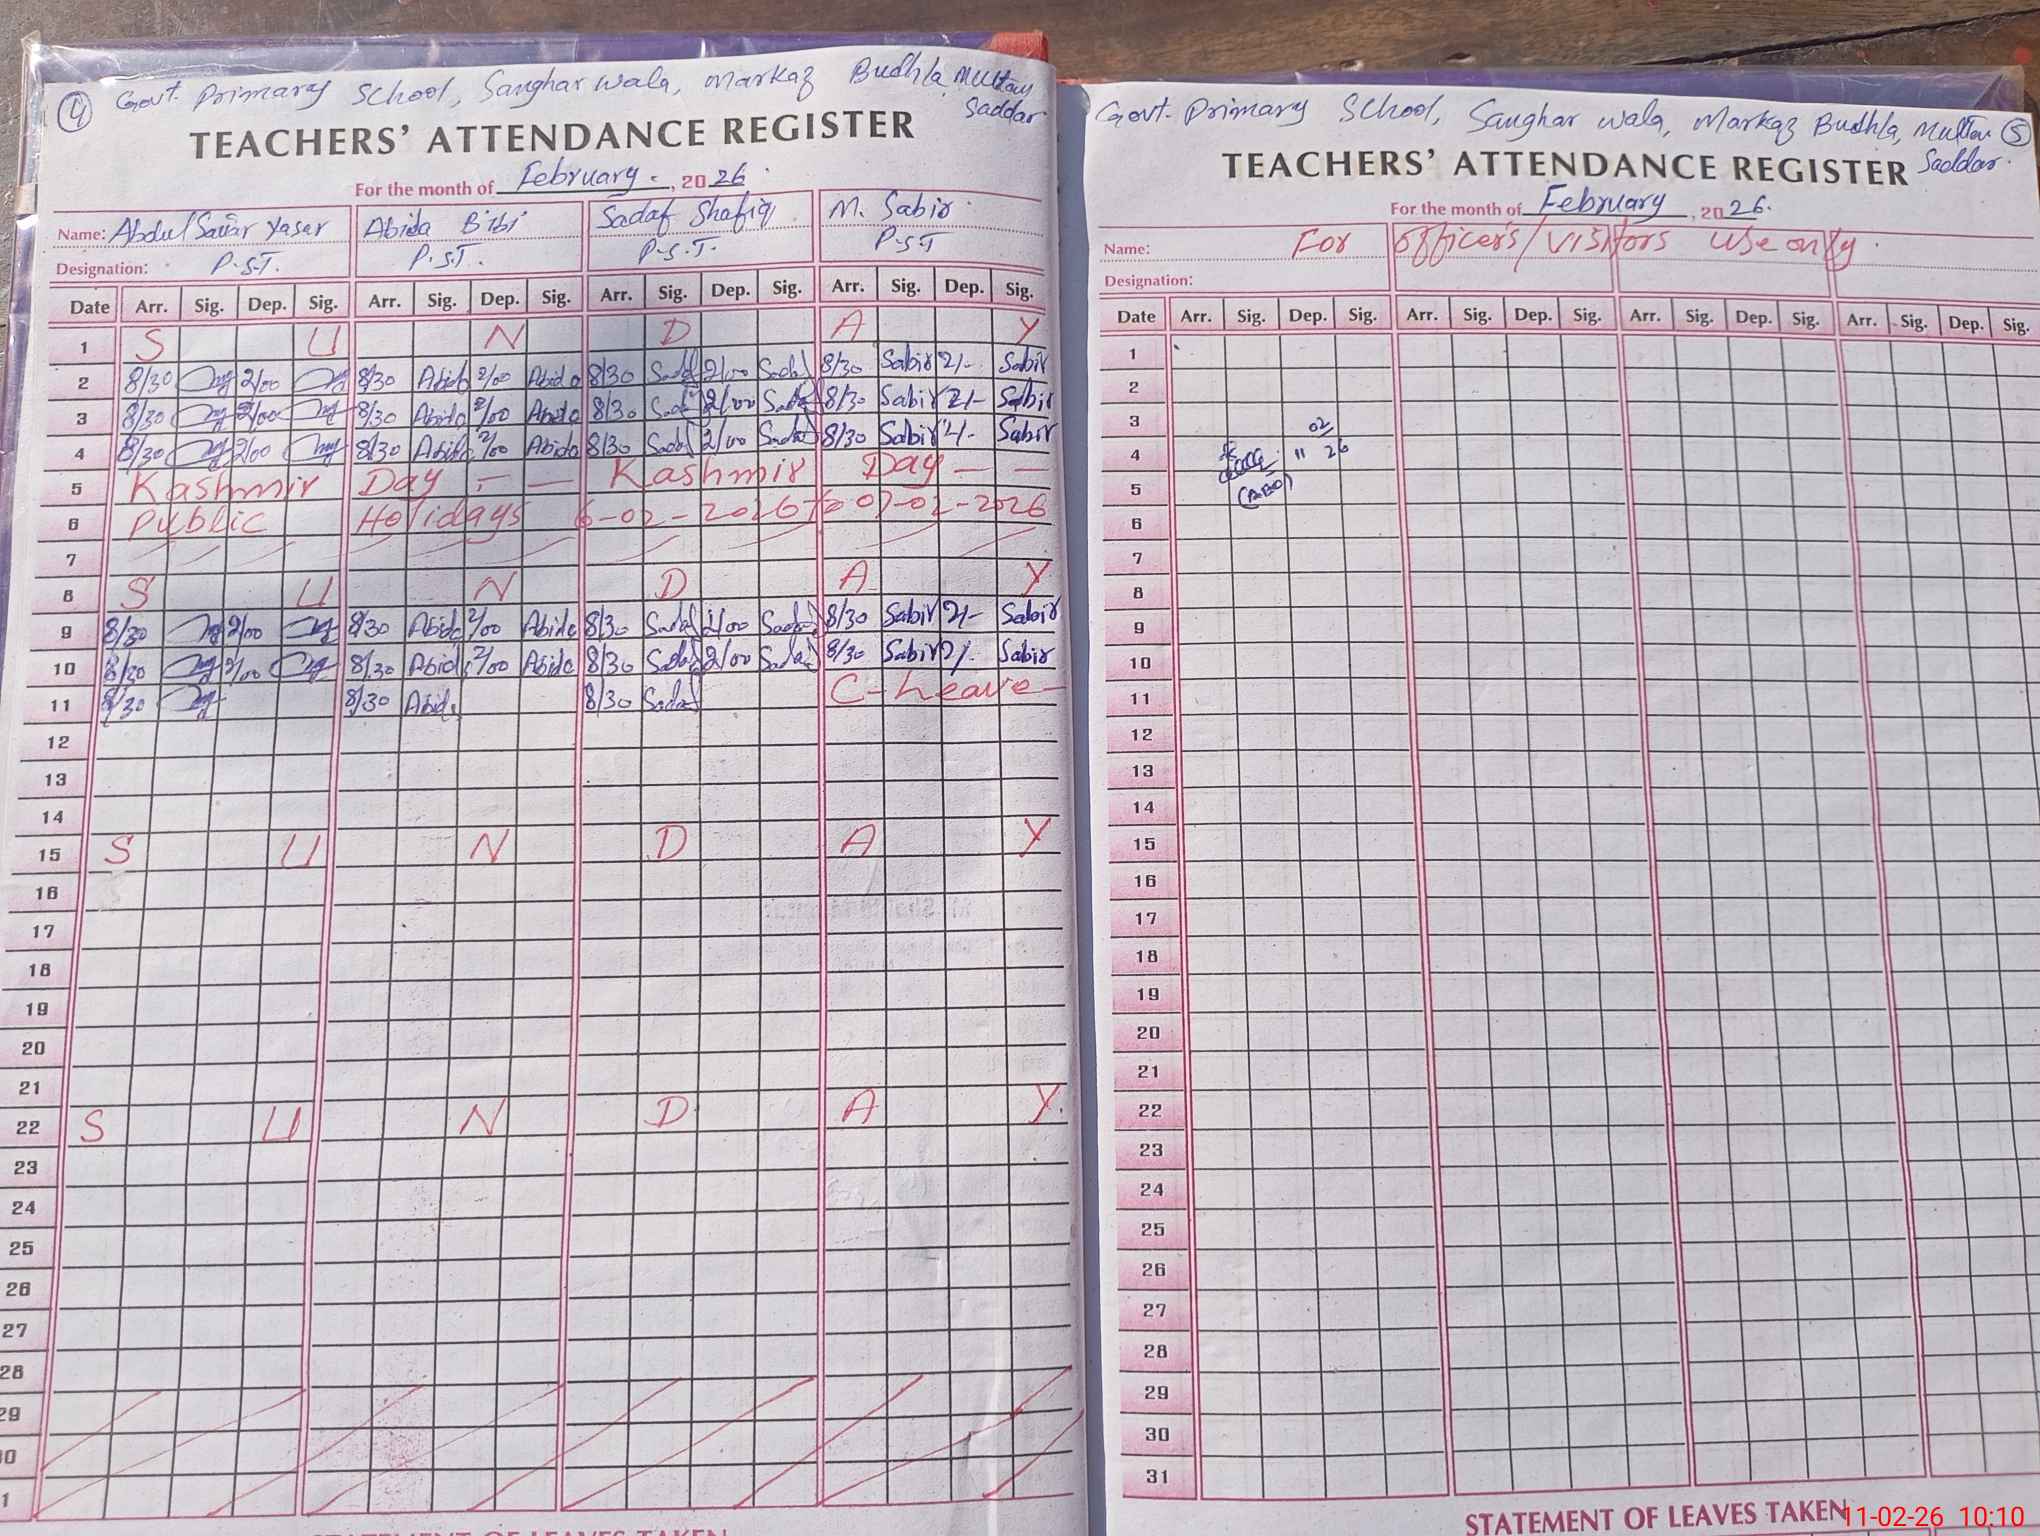 4 Govt. Primary School, Sanghar wala, Markaz Budhla, Multan Saddar
TEACHERS' ATTENDANCE REGISTER
For the month of February. , 2026.
Name: Abdul Sattar Yasar Abida Bibi Sadaf Shafiq M. Sabir
Designation: P.S.T. P.S.T. P.S.T. P.S.T
Date Arr. Sig. Dep. Sig. Arr. Sig. Dep. Sig. Arr. Sig. Dep. Sig. Arr. Sig. Dep. Sig.
1 S U N D A Y
2 8/30 2/00 8/30 Abida 2/00 Abida 8/30 Sadaf 2/00 Sadaf 8/30 Sabir 2/- Sabir
3 8/30 2/00 8/30 Abida 2/00 Abida 8/30 Sadaf 2/00 Sadaf 8/30 Sabir 2/- Sabir
4 8/30 2/00 8/30 Abida 2/00 Abida 8/30 Sadaf 2/00 Sadaf 8/30 Sabir 2/- Sabir
5 Kashmir Day - - Kashmir Day - -
6 Public Holidays 6-02-2026 to 07-02-2026
7
8 S U N D A Y
9 8/30 2/00 8/30 Abida 2/00 Abida 8/30 Sadaf 2/00 Sadaf 8/30 Sabir 2/- Sabir
10 8/30 2/00 8/30 Abida 2/00 Abida 8/30 Sadaf 2/00 Sadaf 8/30 Sabir 2/- Sabir
11 8/30 8/30 Abida 8/30 Sadaf C-Leave-
12
13
14
15 S U N D A Y
16
17
18
19
20
21
22 S U N D A Y
23
24
25
26
27
28
29
30
1
STATEMENT OF LEAVES TAKEN
Govt. Primary School, Sanghar wala, Markaz Budhla, Multan 5
Saddar.
TEACHERS' ATTENDANCE REGISTER
For the month of February , 2026.
Name: For officers/visitors use only.
Designation:
Date Arr. Sig. Dep. Sig. Arr. Sig. Dep. Sig. Arr. Sig. Dep. Sig. Arr. Sig. Dep. Sig.
1
2
3 02
4 " 26
5 (AEO)
6
7
8
9
10
11
12
13
14
15
16
17
18
19
20
21
22
23
24
25
26
27
28
29
30
31
STATEMENT OF LEAVES TAKEN
11-02-26 10:10